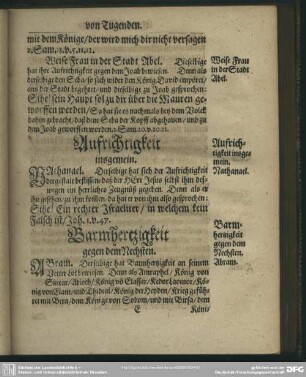 von Tugenden.
mit dem Könige/ der wird mich dir nicht versagen
2. Sam. 13. v. 5. 11. 12.
Weise Frau in der Stadt Abel. Dieselbige
hat ihre Auffrichtigkeit gegen dem Joab bewiesen. Denn als
derselbige den Seba/ so sich wider den König David empöret/
aus der Stadt begehrte/ und dieselbige zu Joab gesprochen:
Sihe/ sein Haupt sol zu dir über die Mauren ge-
worffen werden/ So hat sie es nachmals bey dem Volck
dahin gebracht/ daß dem Seba der Kopff abgehauen/ und zu
dem Joab geworffen worden/ 2. Sam. 20. v. 20. 21.
Weise Frau
in der Stadt
Abel.
Auffrichtigkeit
insgemein.
Auffrich-
tigkeit insge-
mein.
Nathanael.
NAthanael. Derselbige hat sich der Auffrichtigkeit
dergestalt beflissen/ daß der HErr Jesus selbst ihm deß-
wegen ein herrliche Zeugnüß gegeben. Denn als er
ihn gesehen/ zu ihm kommen/ da hat er von ihm also gesprochen:
Sihe/ Ein rechter Israeliter/ in welchem kein
Falsch ist/ Joh. 1. v. 47.
Barmhertzigkeit
gegen dem Nechsten.
Barm-
hertzigkeit
gegen dem
Nechsten.
Abram.
ABram. Derselbige hat Barmhertzigkeit an seinem
Vetter Lot bewiesen. Denn als Amraphel/ König von
Sinear/ Arioch/ König von Elassar/ KedorLaomor/ Kö-
nig von Elam/ und Thideal/ König der Heyden/ Krieg gefüh-
ret mit Bera/ dem Könige von Sodom/ und mit Birsa/ dem
E
Köni-